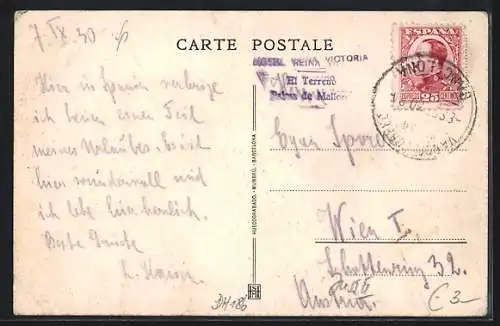 7. IX 30
CARTE POSTALE
HOTEL REINA VICTORIA
El Terreno
Palma de Mallorca
ESPAÑA
25
Hier in Spanien verbringe
ich heuer einen Teil
meines Urlaubes. Es ist
hier wundervoll und
ich lebe
Beste Grüsse
HUECOGRABADO - RIUSSET - BARCELONA
Wien I.
Schottenring 32.
Austria
DH-186
€ 3.-